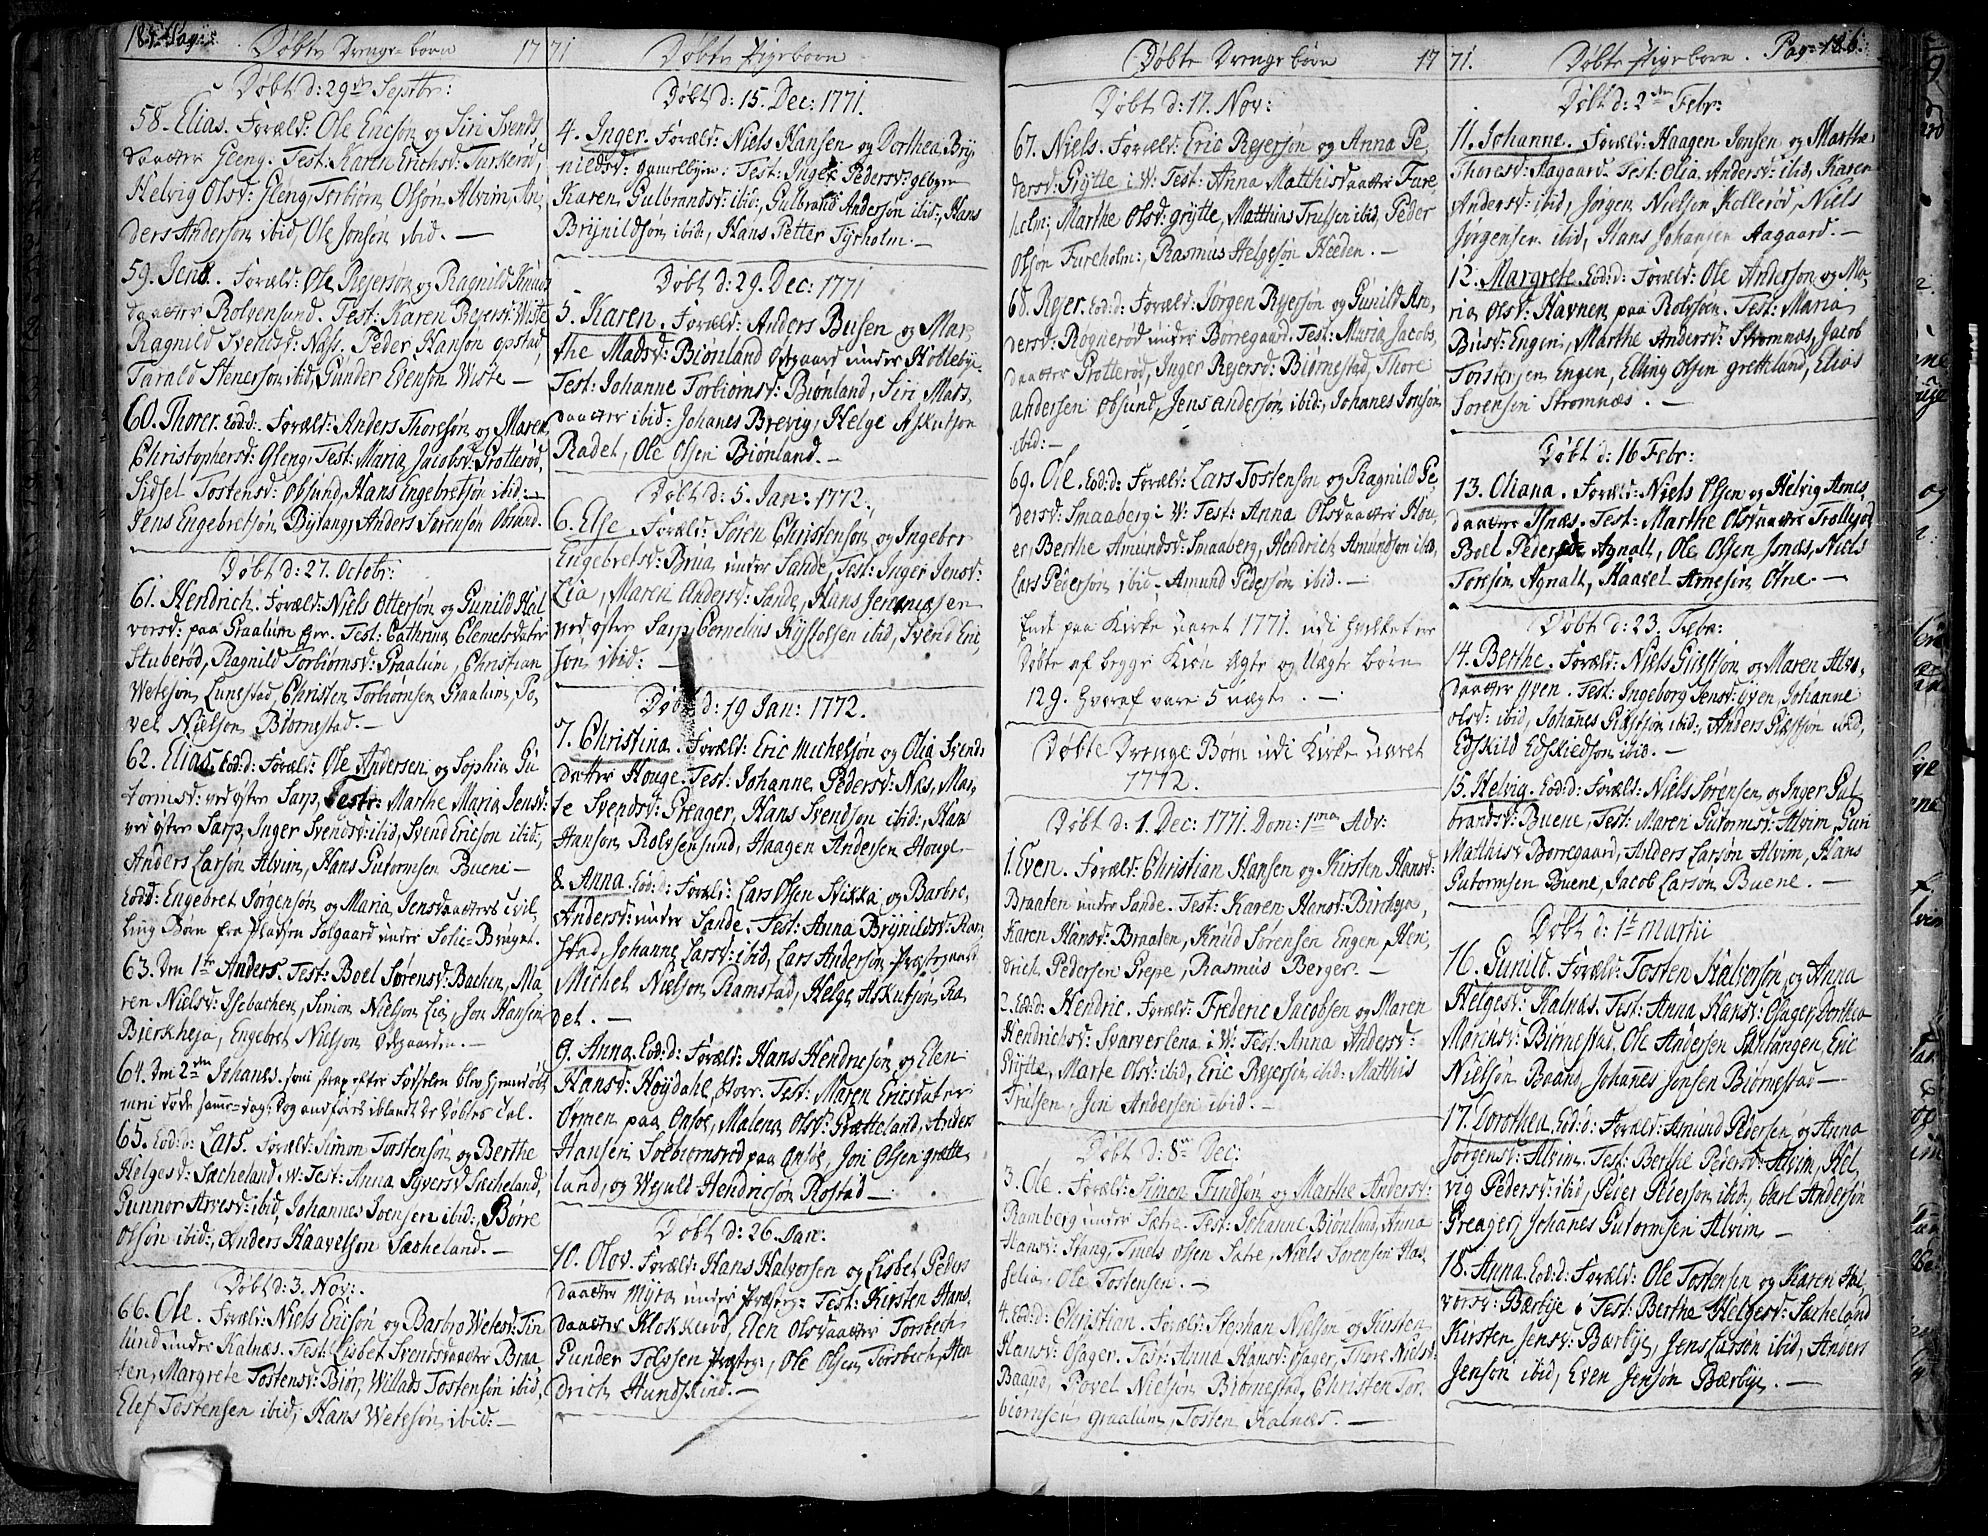 185 Pag:
Døbte Drenge-børn 1771
Døbt d: 29de Septbr:
58. Elias. Foræld: Ole Ericsøn og Siri Svends
daatter Gleng. Test: Karen Erichsd: Turkerød,
Helvig Olsd: Gleng, Torbiørn Olsøn Alvim, An,
ders Andersøn ibid, Ole Jonsøn ibid. —
59. Jens. Foræld: Ole Rejersøn og Ragnild Knuds
daatter Rolvensund. Test: Karen Rejersd: Wiste
Ragnild Svendsd: Næss. Peder Hanson opstad,
Tarald Stenersøn ibid, Gunder Evensøn Wiste —
60. Thorer. Eod:d: Foræld: Anders Thoresøn og Maren
Christophersd: Gleng, Test: Maria Jacobsd: Grotterød,
Sidsel Tostensd: Obsund, Hans Engebretsøn ibid: —
Jens Engebretsøn Bytang, Anders Sørensøn Obsund.
Døbt d: 27. Octobr:
61. Hendrich. Foræld: Niels Ottersøn og Gunild Hal
vorsd: paa Graalum Eier. Test: Cathrina Clemetsdater
Stuberød, Ragnild Torbiørnsd: Graalum, Christian
Wetesøn Lunestad, Christen Torbiørnsen Graalum, Po,
vel Nielsøn Biørnestad. —
62. Elias. Eod:d: Foræld: Ole Andersen og Sophia Gu
tormsd: ved øster Sarp, Test: Marthe Maria Jensd:
ved øster Sarp, Inger Svendsd: ibid, Svend Ericsøn ibid:,
Anders Larsøn Alvim, Hans Gutormsen Buene —
Eod:d: Engebret Jørgensøn og Maria Jensdaatters tvil,
ling Børn fra Pladsen Solgaard under Solie-Bruget.
63. Den 1te Anders. Test: Boel Sørensd: Backen, Ma
ren Nielsd: Isebachen, Simon Nielsøn Lia, Jon Hansen
Bierkheja, Engebret Nielsøn Odegaarden. —
64. Den 2den Johanes. som strax efter Fødselen blev hjemdøbt
men døde samme dag; Dog andføres iblandt de døbtes Tal.
65. Eod:d: Lars. Foræld: Simon Torstensøn og Berthe
Helgesd: Sacheland. W: Test: Anna Syversd Sacheland,
Gunnor Arvesd: ibid, Johannes Joensen ibid:, Børre
Olsøn ibid:, Anders Haavelsøn Sacheland. —
Døbt d: 3. Nov:
66. Ole. Foræld: Niels Ericsøn og Barbro Wetesd: Tin
lund under Kalnæs. Test: Lisbet Svensdaatter Braa
ten, Margrete Tostensd: Biør, Willads Tostensøn ibid,
Elef Tostensen ibid, Hans Wetesøn ibid: —
Døbte Pigebørn
Døbt d: 15. Dec: 1771.
4. Inger. Foræld: Niels Hansen og Dorthea Bry,
nildsd: gamelbyen: Test: Inger Pedersd: glbyen
Karen Gulbrandsd: ibid:, Gulbrand Andersøn ibid:, Hans
Brynildsøn ibid:, Hans Petter Tyrholm. —
Døbt d: 29. Dec: 1771
5. Karen. Foræld: Anders Busen og Mar,
the Madsd: Biønland Odgaard under Holleby.
Test: Johanne Torbiørnsd: Biønland, Siri Mads,
daatter ibid: Johanes Brevig, Helge Askutsøn
Radet, Ole Olsen Biønland. —
Døbt d: 5. Jan: 1772.
6. Else. Foræld: Søren Christensøn og Ingebor
Engebretsd: Brua, under Sande, Test: Inger Jensd:
Lia, Maren Andersd: Sande, Hans Jeremiæsen
ved øster Sarp, Cornelius Kystolsen ibid, Svend Eric,
søn ibid: —
Døbt d: 19 Jan: 1772.
7. Christina. Foræld: Eric Michelsøn og Olia Svends
datter Houge. Test: Johanne Pedersd: Næs, Mar,
te Svendsd: Greager, Hans Svendsøn ibid:, Hans
Hansøn Rolvsensund, Haagen Andersen Houge —
8. Anna. Eod:d: Foræld: Lars Olsen Svikka og Barbro
Andersd: under Sande. Test: Anna Brynildsd: Ram
stad, Johanne Larsd: ibid, Lars Andersøn Præstegaard
Michel Nielsøn Ramstad, Helge Askutsøn Ra
det. —
9. Anna. Eod:d: Foræld: Hans Hendricsøn og Elen
Hansd: Høydahl, store. Test: Maren Ericsdater
Ormen paa Onsøe, Malena Olsd: Grætteland, Anders
Hansen Solbiørnsrød paa Onsøe, Jon Olsen grætte
land, og Wejuld Hendricsøn Rostad —
Døbt d: 26. Jan:
10. Olov. Foræld: Hans Halvorsen og Lisbet Peders
daatter Myra under Præsteg: Test: Kirsten Hans,
daatter Klokkerød, Elen Olsdaatter Torsbech
Gunder Tolvsen Præsteg:, Ole Olsen Torsbech, Hen
drich Hundskind. —
Døbte Drenge børn 1771.
Døbt d: 17. Nov:
67. Niels. Foræld: Eric Rejersøn og Anna Pe,
dersd: Grytte i W: Test: Anna Matthisdaatter Fure,
holm; Marthe Olsd: grytte, Matthias Trulsen ibid, Peder
Olsøn Fureholm:, Rasmus Helgesøn Heeden. —
68. Rejer. Eod:d: Foræld: Jørgen Rejersøn og Gunild An,
dersd: Rognerød under Borregaard. Test: Maria Jacobs,
daatter Grotterød, Inger Rejersd: Biørnestad, Thore
Andersen Obsund, Jens Andersøn ibid:, Johanes Jonsøn
ibid: —
69. Ole. Eod:d: Foræld: Lars Tostensøn og Ragnild Pe,
dersd: Smaaberg i W: Test: Anna Olsdaatter Hou,
er, Berthe Amundsd: Smaaberg, Hendrich Amundsøn ibid,
Lars Pedersøn ibid:, Amund Pedersøn ibid. —
Endt paa Kirke Aaret 1771. udi hvilket er
Døbte af begge Kiøn ægte og Uægte børn
129. hvoraf vare 5 uægte. —
Døbte Drenge Børn udi Kirke Aaret
1772.
Døbt d: 1. Dec: 1771. Dom: 1ma Adv:
1. Even. Foræld: Christian Hansen og Kirsten Hansd:
Braaten under Sande. Test: Karen Hansd: Bircheja,
Karen Hansd: Braaten, Knud Sørensen Engen, Hen,
drich Pedersen Grepe, Rasmus Berger. —
2. Eod:d: Hendric. Foræld: Frederic Jacobsen og Maren
Hendrichsd: Svarverlena i W: Test: Anna Andersd:
Grytte, Marte Olsd: ibid, Eric Rejersøn ibid: Matthis
Trulsen, Jon Andersen ibid. —
Døbt d: 8de Dec:
3. Ole. Foræld: Simon Findsøn og Marthe Andersd:
Ramberg under Sætre. Test: Johanne Biønland, Anna
Hansd: Stang, Truels Olsen Sætre, Niels Sørensen Has,
selia, Ole Tostensen. —
4. Eod:d: Christian. Foræld: Stephan Nielsøn og Kirsten
Hansd: Osager. Test: Anna Hansd: Osager, Thore Nielsd:
Baand, Povel Nielsøn Biørnestad, Christen Tor,
biørnsen graalum, Tosten Kalnæs. —
Døbte Pigebørn. Pag: 186.
Døbt d: 2den Febr:
11. Johanne. Foræld: Haagen Jonsen og Marthe
Thoresd: Aagaard. Test: Olia Andersd: ibid, Karen
Andersd: ibid, Jørgen Nielsøn Kollerød, Niels
Jørgensen ibid, Hans Johansen Aagaard. —
12. Margrete. Eod:d: Foræld: Ole Andersøn og Ma,
ria Olsd: Havnen paa Rolvsøen. Test: Maria
Busd: Engen, Marthe Andersd: Strømnæs, Jacob
Torstensen Engen, Elling Olsen gretteland, Elias
Sørensen Strømnæs. —
Døbt d: 16 Febr:
13. Oliana. Foræld: Niels Olsen og Helvig Arnes
daatter Isnæs. Test: Marthe Olsdaatter Trollsjøl
Boel Pedersd: Agnalt, Ole Olsen Isnæs, Niels
Toresøn Agnalt, Haavel Arnesøn Øsne. —
Døbt d: 23. Febr:
14. Berthe. Foræld: Niels Gulstøn og Maren Alvs
daatter Yven. Test: Ingeborg Jensd: Yven, Johanne
Olsd: ibid, Johanes ibid:, Anders ibid,
Edskild Edskiedsøn ibid. —
15. Helvig. Eod:d: Foræld: Niels Sørensen og Inger Gul
brandsd: Buene, Test: Maren Gutormsd: Alvim, Guri
Mathisd Borregaard, Anders Larsøn Alvim, Hans
Gutormsen Buene, Jacob Larsøn Buene. —
Døbt d: 1te Martii
16. Gunild. Foræld: Tosten Halvorsøn og Anna
Helgesd: Kalnæs. Test: Anna Hansd: Osager, Dorthea
Mortensd: Biørnestad, Ole Andersen Santangen, Eric
Nielsøn Baand, Johanes Jonsen Biørnestad —
17. Dorothea. Eod:d: Foræld: Amund Pedersen og Anna
Jørgensd: Alvim. Test: Berthe Pedersd: Alvim, Hel,
vig Pedersd: ibid, Peder Pedersøn ibid:, Carl Andersøn
Greager, Johanes Gutormsen Alvim, —
18. Anna. Eod:d: Foræld: Ole Tostensen og Karen Hal,
vorsd: Bærbye. Test: Berthe Helgesd: Sacheland
Kirsten Jensd: Bærbye, Jens Larsøn ibid, Anders
Jensøn ibid, Even Jensøn Bærbye. —